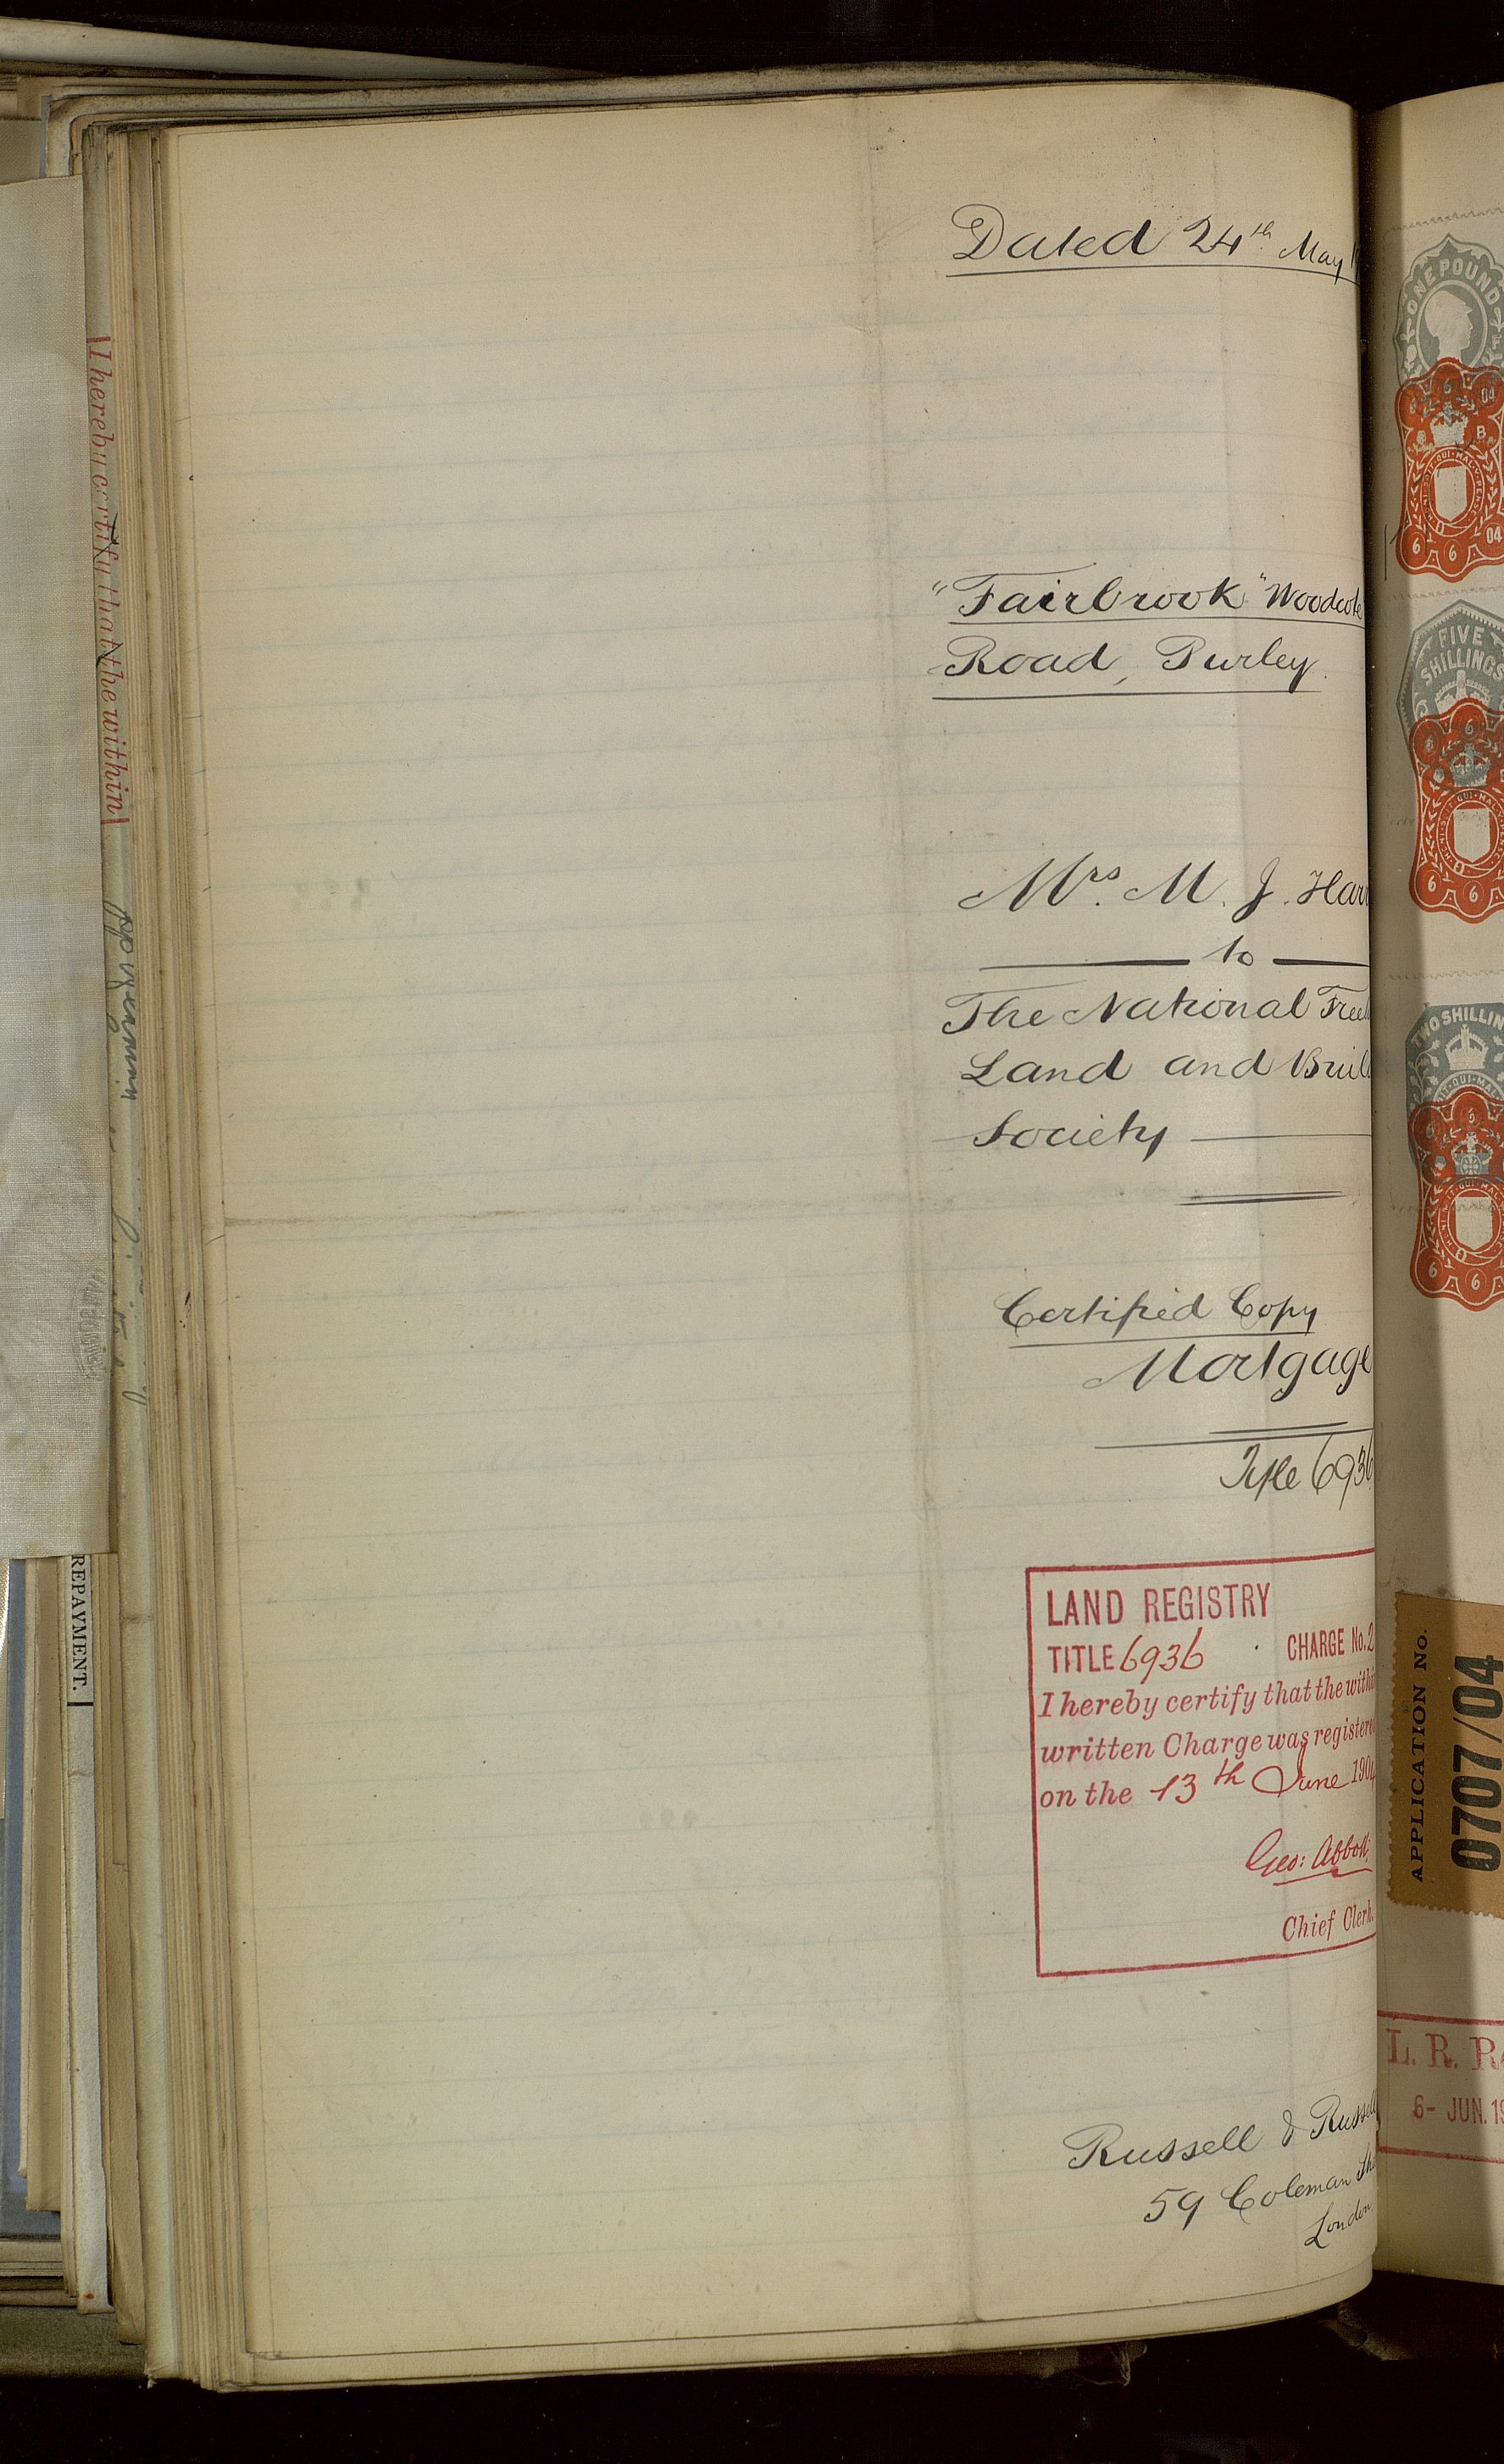 Dated 24th May
"Fairbrook" Woodcote
Road, Purley.
Mrs. M. J. Harr
to
The National Freeh
Land and Build
Society
Certified Copy
Mortgage
Title 6936
LAND REGISTRY
TITLE 6936 CHARGE No. 2
I hereby certify that the within
written Charge was registered
on the 13th June 1904
Geo: Abbott
Chief Clerk.
Russell & Russell
59 Coleman
London
I hereby certify that the within
REPAYMENT.
ONE POUND
6 04
B
6 6 04
FIVE
SHILLINGS
6
6 6
TWO SHILLIN
6
6 6
APPLICATION No.
0707/04
L. R. R
6- JUN. 19